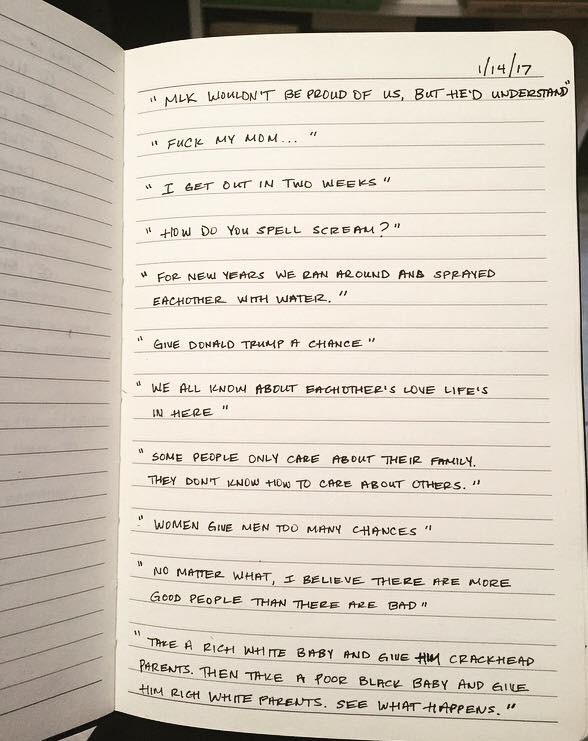 1/14/17
"MLK WOULDN'T BE PROUD OF US, BUT HE'D UNDERSTAND"
"FUCK MY MOM..."
"I GET OUT IN TWO WEEKS"
"HOW DO YOU SPELL SCREAM?"
"FOR NEW YEARS WE RAN AROUND AND SPRAYED
EACHOTHER WITH WATER."
"GIVE DONALD TRUMP A CHANCE"
"WE ALL KNOW ABOUT EACHOTHER'S LOVE LIFE'S
IN HERE"
"SOME PEOPLE ONLY CARE ABOUT THEIR FAMILY.
THEY DON'T KNOW HOW TO CARE ABOUT OTHERS."
"WOMEN GIVE MEN TOO MANY CHANCES"
"NO MATTER WHAT, I BELIEVE THERE ARE MORE
GOOD PEOPLE THAN THERE ARE BAD"
"TAKE A RICH WHITE BABY AND GIVE HIM CRACKHEAD
PARENTS. THEN TAKE A POOR BLACK BABY AND GIVE
HIM RICH WHITE PARENTS. SEE WHAT HAPPENS."